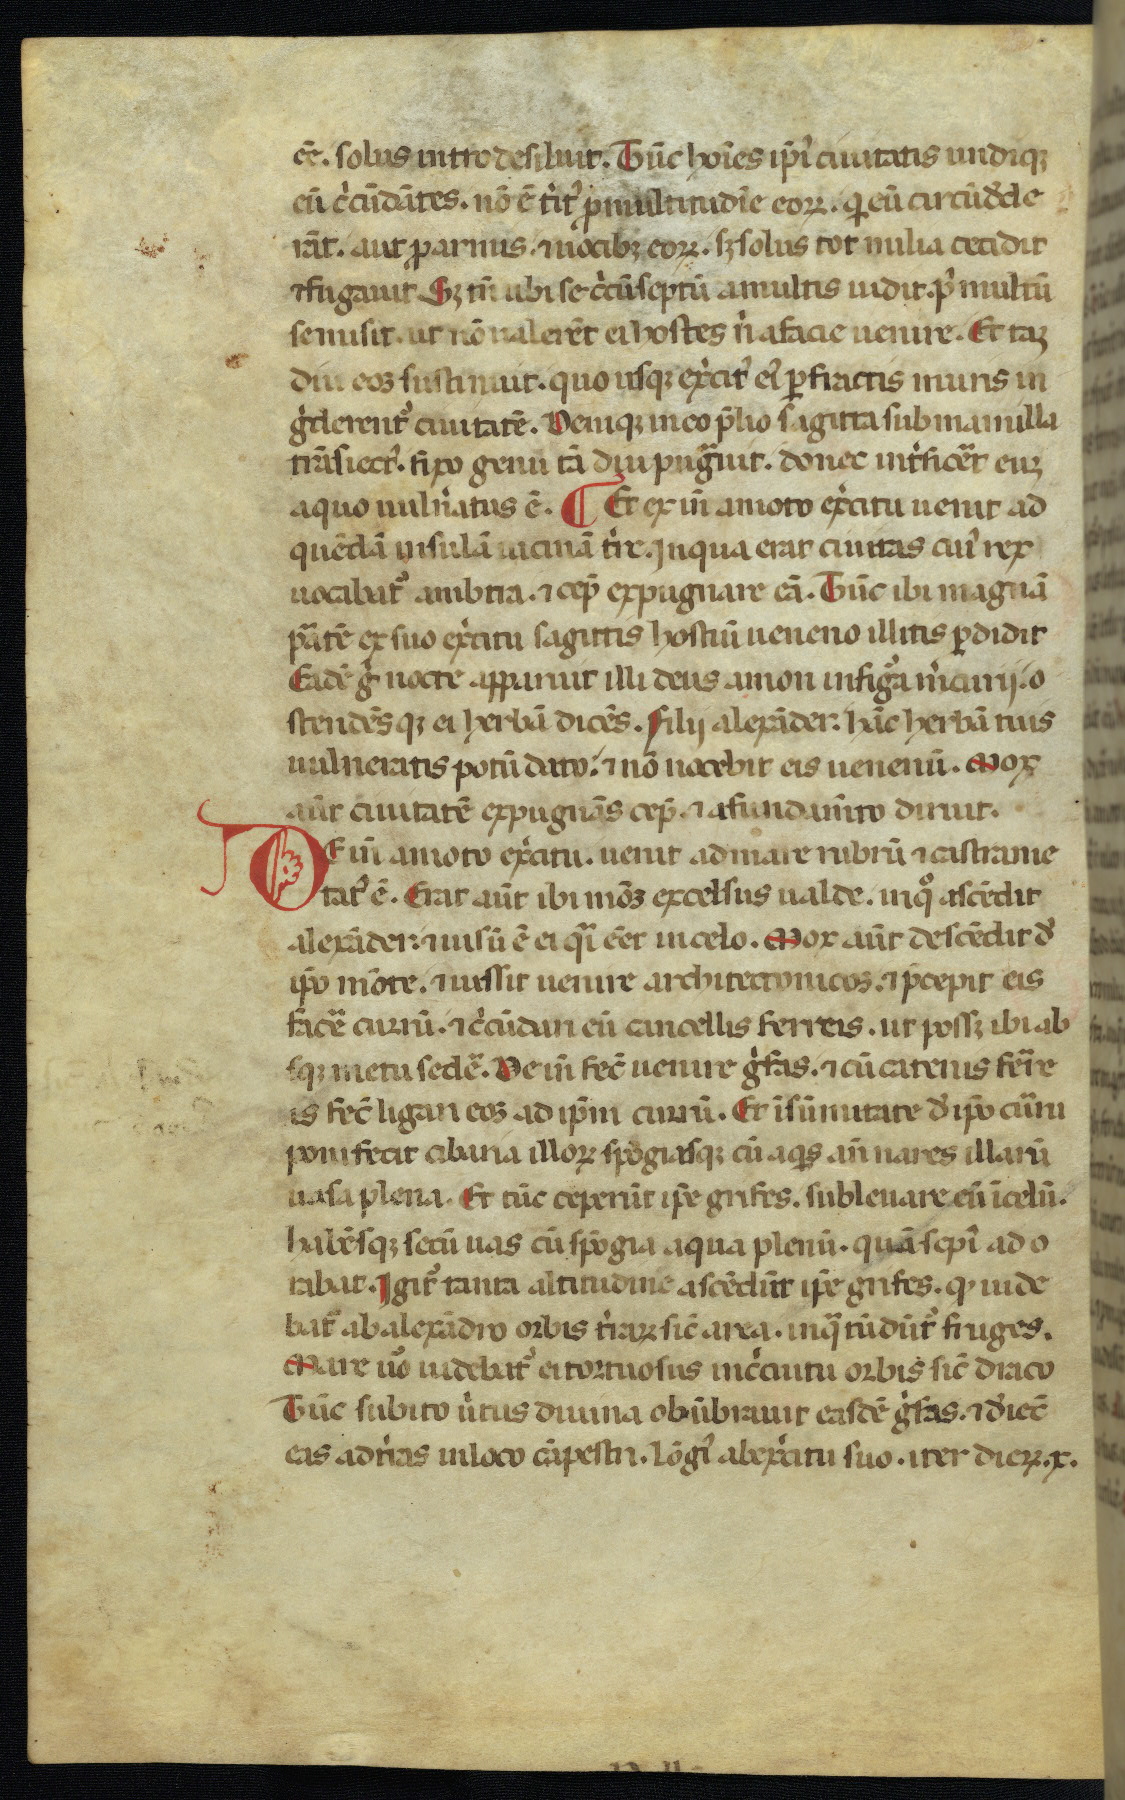 eē. solus intro desiluit. Tūc hoīes ipī ciuitatis undiqꝫ
eū c̓cūdātes. nō ē t̓it᷒ p̄ multitudīe eoꝝ. q̇ eū circūd̓de
rāt. aut p armis. ⁊ uocibꝫ eoꝝ. sꝫ solus tot milia cecidit
⁊ fugauit. Sꝫ tn̄ ubi se c̓cūseptū a multis uidit. p̓ multū
se misit. ut nō ualerēt ei hostes n̓ a facie uenire. Et taꝫ
diu eoꝫ sustinuit. quo usqꝫ ex̓citꝰ eiꝰ ꝑfractis muris in
g̓derent᷒ ciuitatē. Deniqꝫ in eo p̄lio sagitta sub mamilla
trāsiectꝰ. fixo genu tā diu pugᷓuit. donec int̓ficēt euꝫ
a quo uuln̓atus ē. Et ex in̄ amoto ex̓citu uenit ad
quēdā insulā uicinā t̓re. In qua erat ciuitas cuiꝰ rex
uocabat᷒ ambira. ⁊ cep̄ expugnare eā. Tūc ibi magnā
ꝑtē ex suo ex̓citu sagittis hostiū ueneno illitis ꝑdidit
Eādē g̓ nocte apparuit illi deus amon in figᷓa m̓curij. o
stendēsqꝫ ei herbā dicēs. Filij alexāder. hāc herbā tuis
uulneratis potū dato. ⁊ nō nocebit eis uenenū. Mox
aūt ciuitatē expugnās cep̄. ⁊ a fundam̄to diruit.
DE in̄ amoto ex̓citu. uenit ad mare rubrū ⁊ castrame
tatꝰ ē. Erat aūt ibi mōs excelsus ualde. in qͦ ascēdit
alexāder. ⁊ uisū ē ei qᷓi eēt in celo. Mox aūt descēdit d̓
ip̄o mōte. ⁊ iussit uenire architectonicoꝫ. ⁊ p̄cepit eis
facē currū. ⁊ c̓cūdari eū cancellis ferreis. ut possꝫ ibi ab
sqꝫ metu sedē. De in̄ fec̄ uenire g̓fas. ⁊ cū catenis fēre
is fec̄ ligari eoꝫ ad ip̄m currū. Et ī sūmitate d̓ ip̄o cūru
poni fecit cibaria illoꝝ spōgiasqꝫ cū aqͣs an̄ nares illarū
uasa plena. Et tūc ceperūt ip̄e grifes. subleuare eū ī celū.
habēsqꝫ secū uas cū spōgia aqua plenū. quā sepiꝰ ad o
rabat. Igit᷒ tanta altitudine ascēdūt ip̄e grifes. ꝙ uide
bat᷒ ab alexādro orbis t̓raꝝ sic̄ area. in qᷓ tūdūt᷒ fruges.
Mare u̓o uidebat᷒ ei tortuosus in c̓cuitu orbis sic̄ draco
Tūc subito u̓tus diuina obūbrauit easdē g̓fas. ⁊ d̓iec̄
eas ad t̓ras in loco cāpestri. lōgiꝰ ab ex̓citu suo. iter dieꝝ. x.